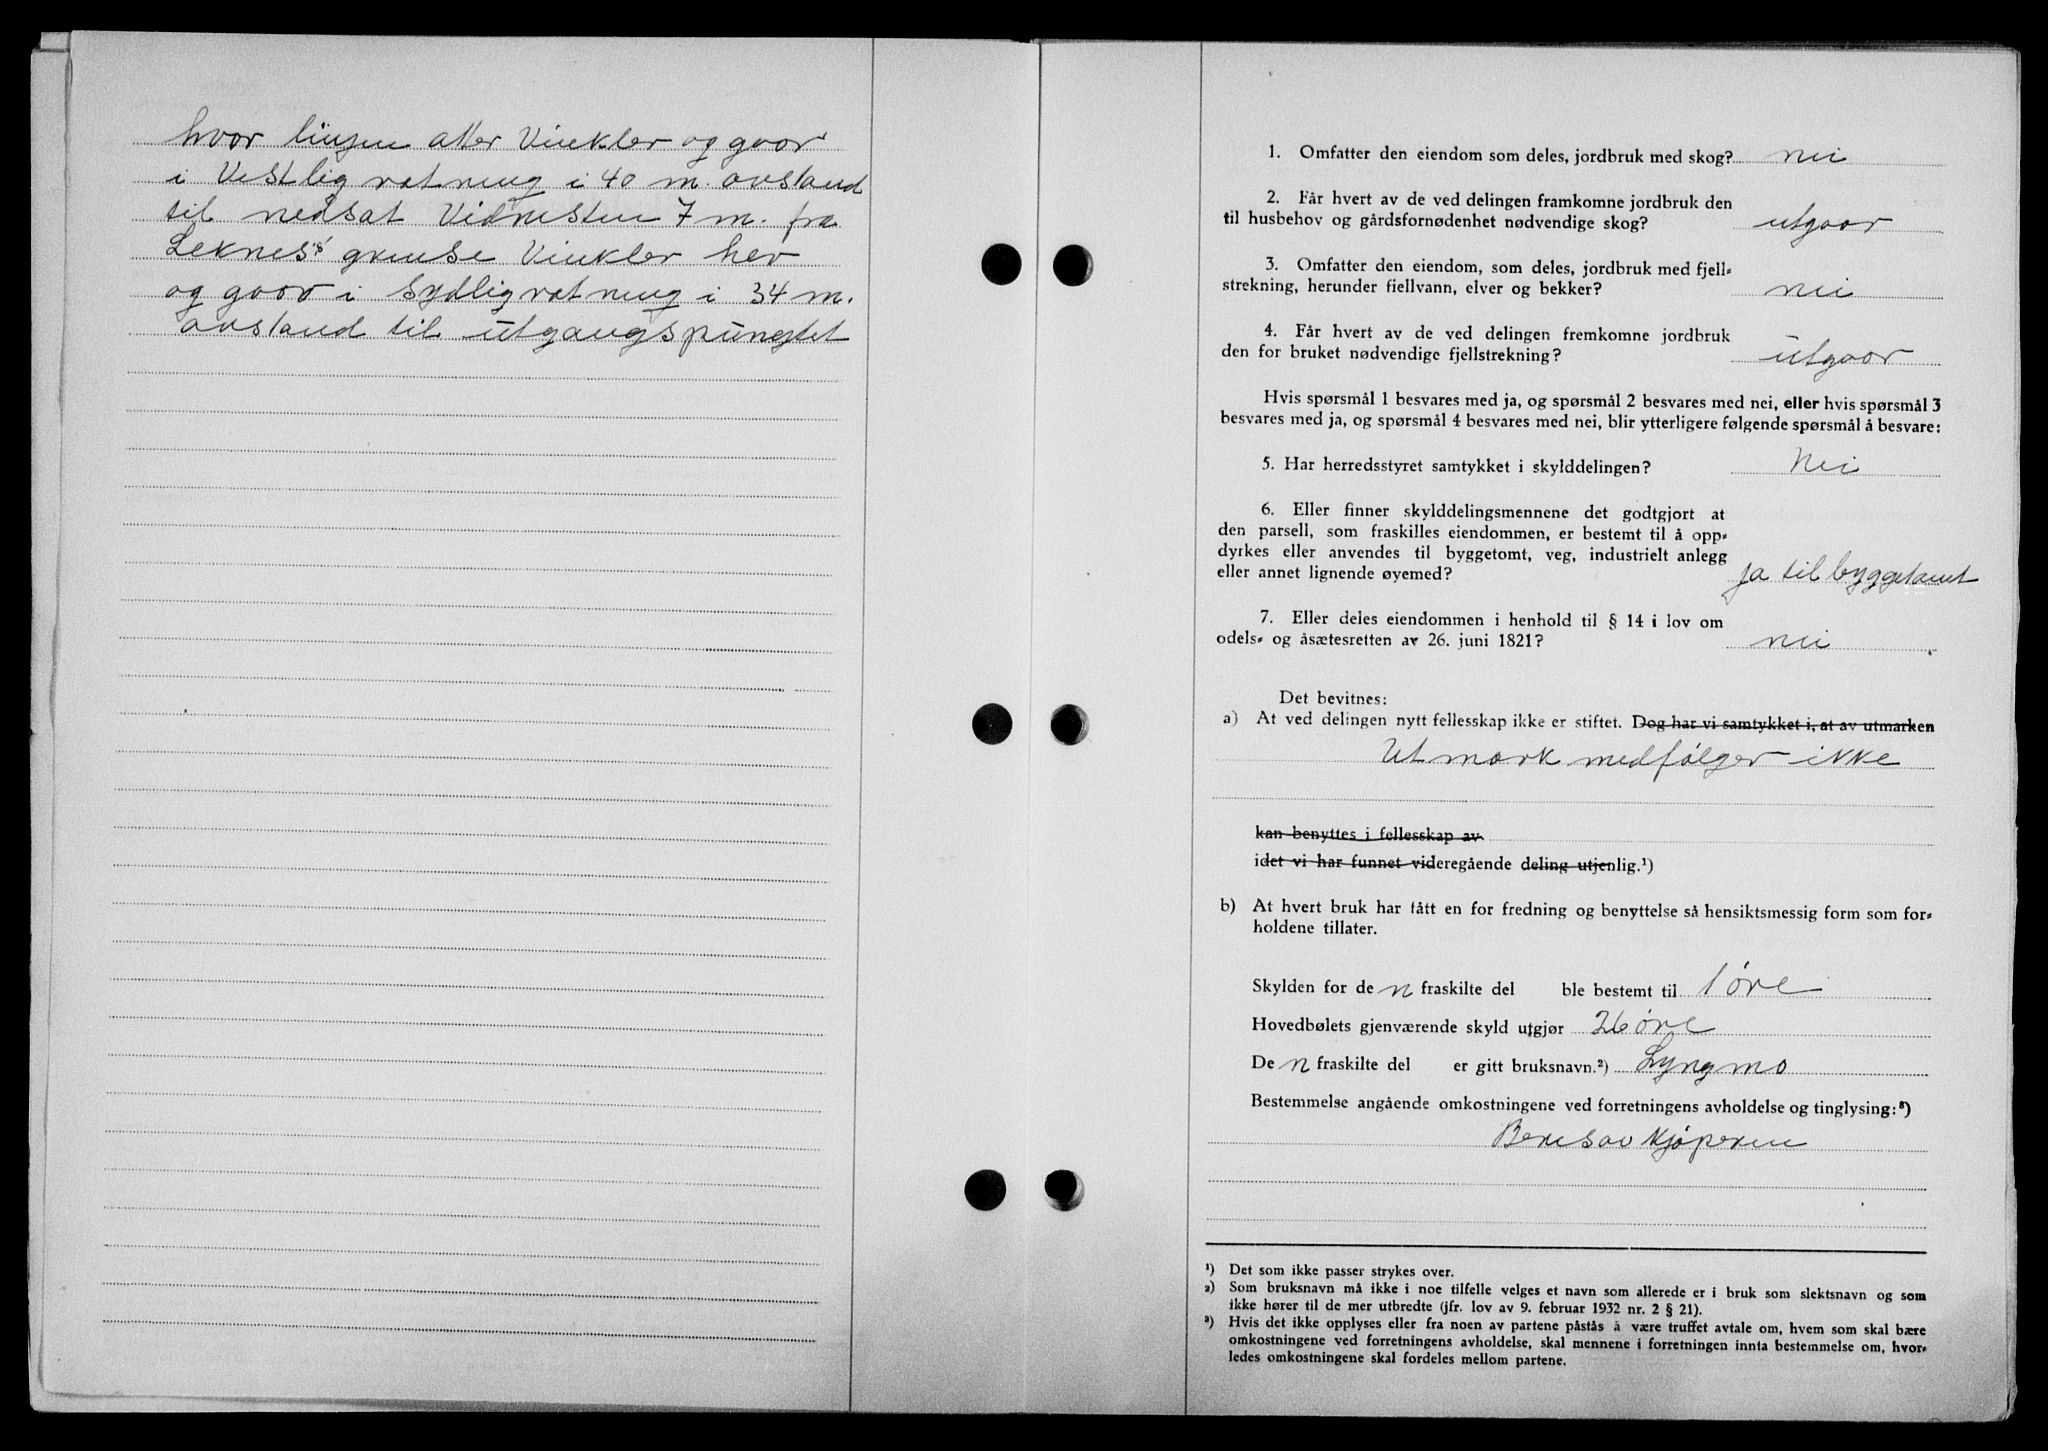 hvor linjen atter Vinkler og gaar
i Vestlig retning i 40 m. avstand
til nedsat Vidnesten 7 m. fra
Leknes's grense Vinkler her
og gaar i Sydlig retning i 34 m.
avstand til utgangspungtet
1. Omfatter den eiendom som deles, jordbruk med skog? nei
2. Får hvert av de ved delingen framkomne jordbruk den
til husbehov og gårdsfornødenhet nødvendige skog? utgaar
3. Omfatter den eiendom, som deles, jordbruk med fjell-
strekning, herunder fiellvann, elver og bekker? nei
4. Får hvert av de ved delingen fremkomne jordbruk
den for bruket nødvendige fjellstrekning? utgaar
Hvis spørsmål 1 besvares med ja, og spørsmål 2 besvares med nei, eller hvis spørsmål 3
besvares med ja, og spørsmål 4 besvares med nei, blir ytterligere følgende spørsmål å besvare:
5. Har herredsstyret samtykket i skylddelingen? Nei
6. Eller finner skylddelingsmennene det godtgjort at
den parsell, som fraskilles eiendommen, er bestemt til å opp-
dyrkes eller anvendes til byggetomt, veg, industrielt anlegg
eller annet lignende øyemed? ja til byggetomt
7. Eller deles eiendommen i henhold til § 14 i lov om
odels- og åsætesretten av 26. juni 1821? nei
Det bevitnes:
a) At ved delingen nytt fellesskap ikke er stiftet. Dog har vi samtykket i, at av utmarken
Utmark medfølger ikke
kan benyttes i fellesskap av
idet vi har funnet videregående deling utjenlig.¹)
b) At hvert bruk har fått en for fredning og benyttelse så hensiktsmessig form som for-
holdene tillater.
Skylden for de n fraskilte del ble bestemt til 1 øre
Hovedbølets gjenværende skyld utgjør 26 øre
De n fraskilte del er gitt bruksnavn.²) Lyngmo
Bestemmelse angående omkostningene ved forretningens avholdelse og tinglysing:³)
Beres av Kjøperen
¹) Det som ikke passer strykes over.
²) Som bruksnavn må ikke i noe tilfelle velges et navn som allerede er i bruk som slektsnavn og som
ikke hører til de mer utbredte (jfr. lov av 9. februar 1932 nr. 2 § 21).
³) Hvis det ikke opplyses eller fra noen av partene påstås å være truffet avtale om, hvem som skal bære
omkostningene ved forretningens avholdelse, skal mennene i forretningen innta bestemmelse om, hvor-
ledes omkostningene skal fordeles mellom partene.